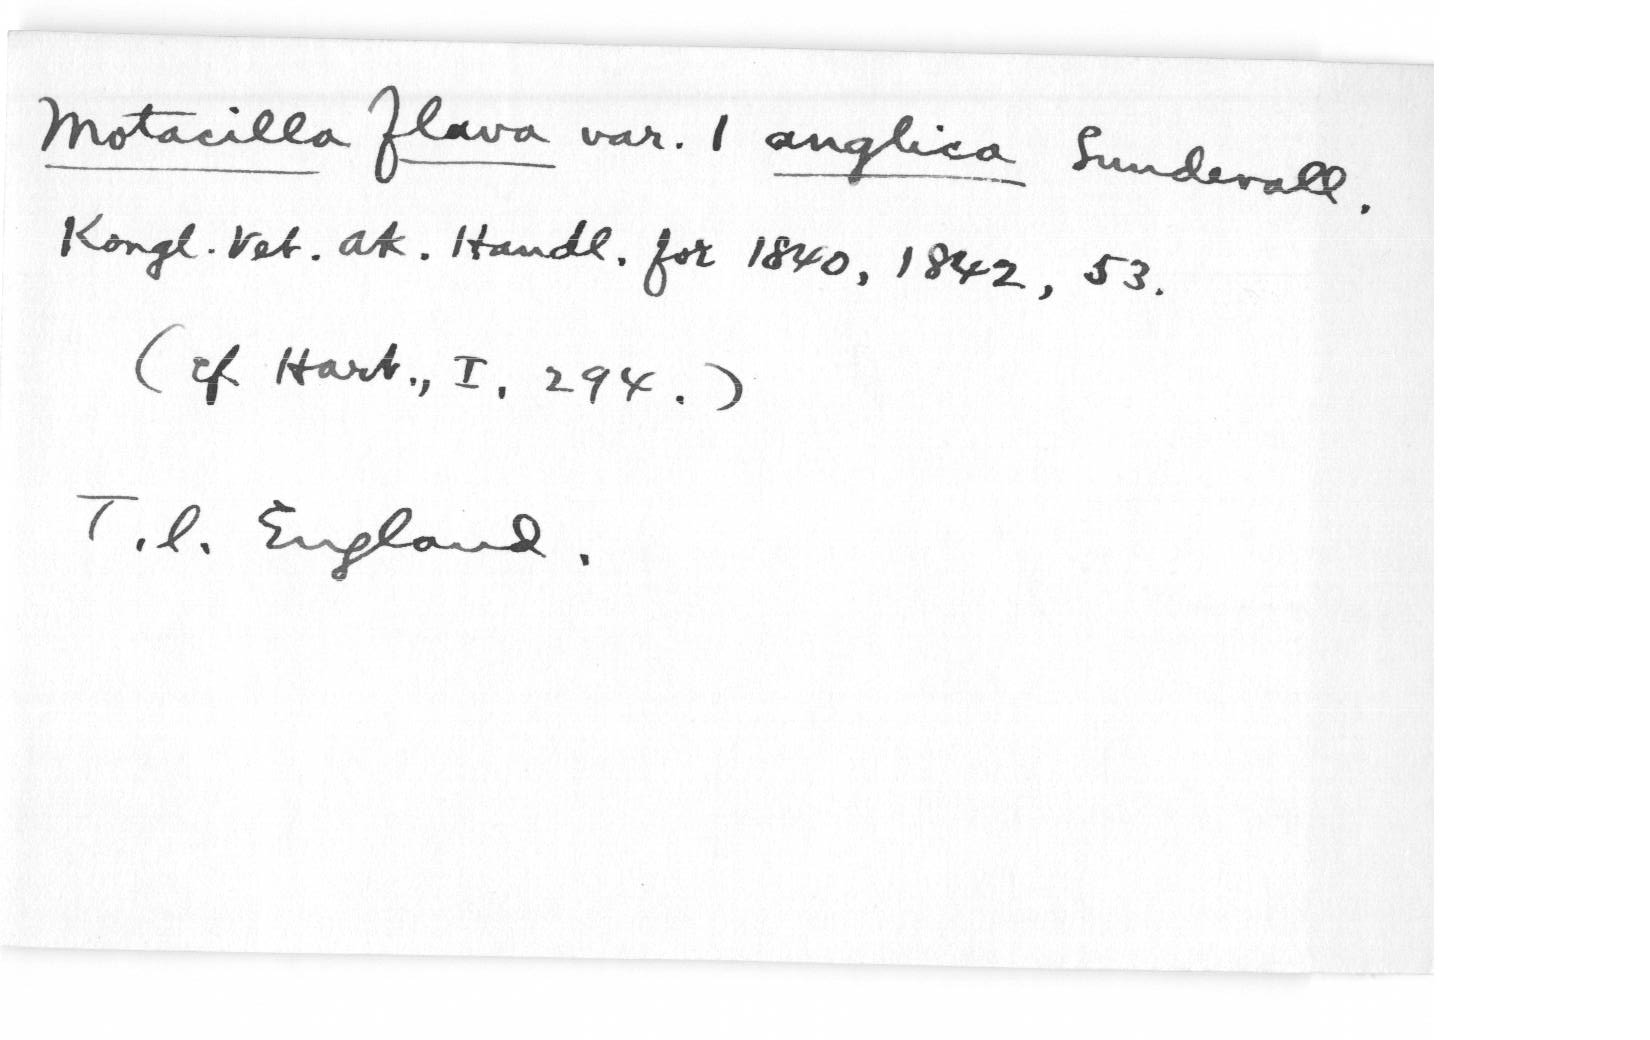 Motacilla flava var. 1 anglica Sundevall.
Kongl. Vet. Ak. Handl. for 1840, 1842, 53.
(cf Hart., I, 294.)
T.l. England.